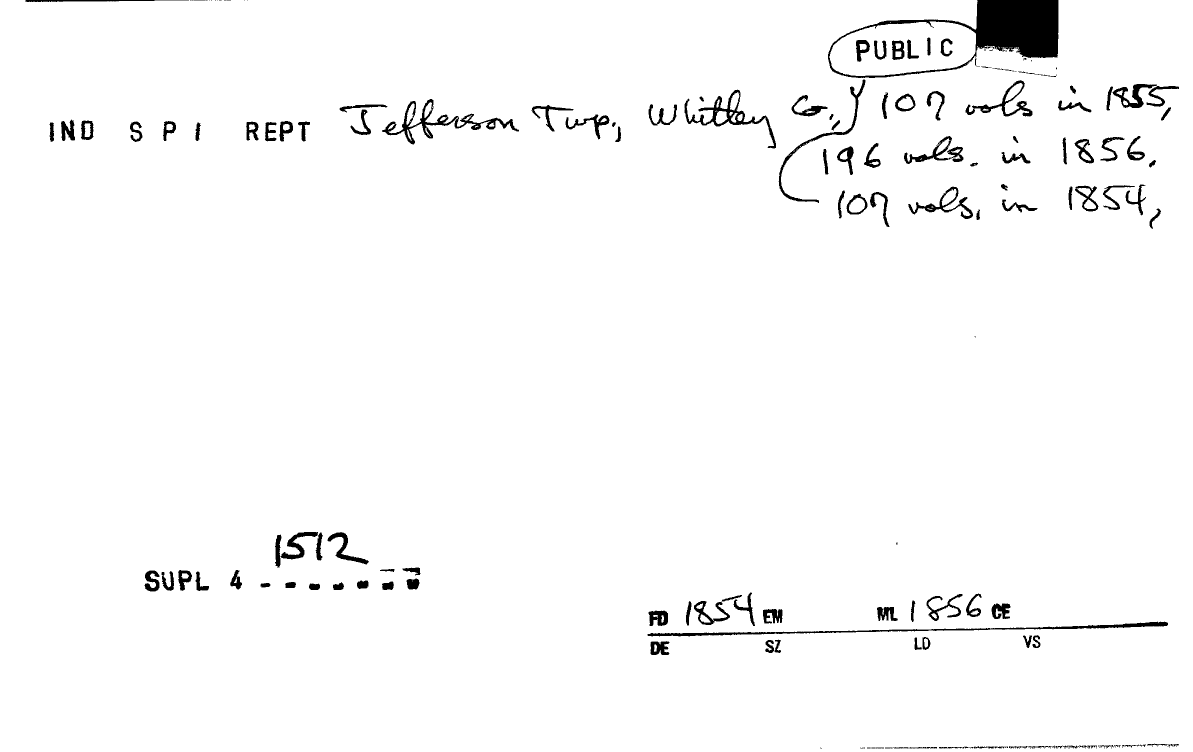 PUBLIC
IND S P I REPT Jefferson Twp., Whitley Co., 107 vols in 1855,
196 vols. in 1856.
107 vols. in 1854,
1512
SUPL 4 - - - - - - -
FD 1854 EM ML 1856 CE
DE SZ LD VS